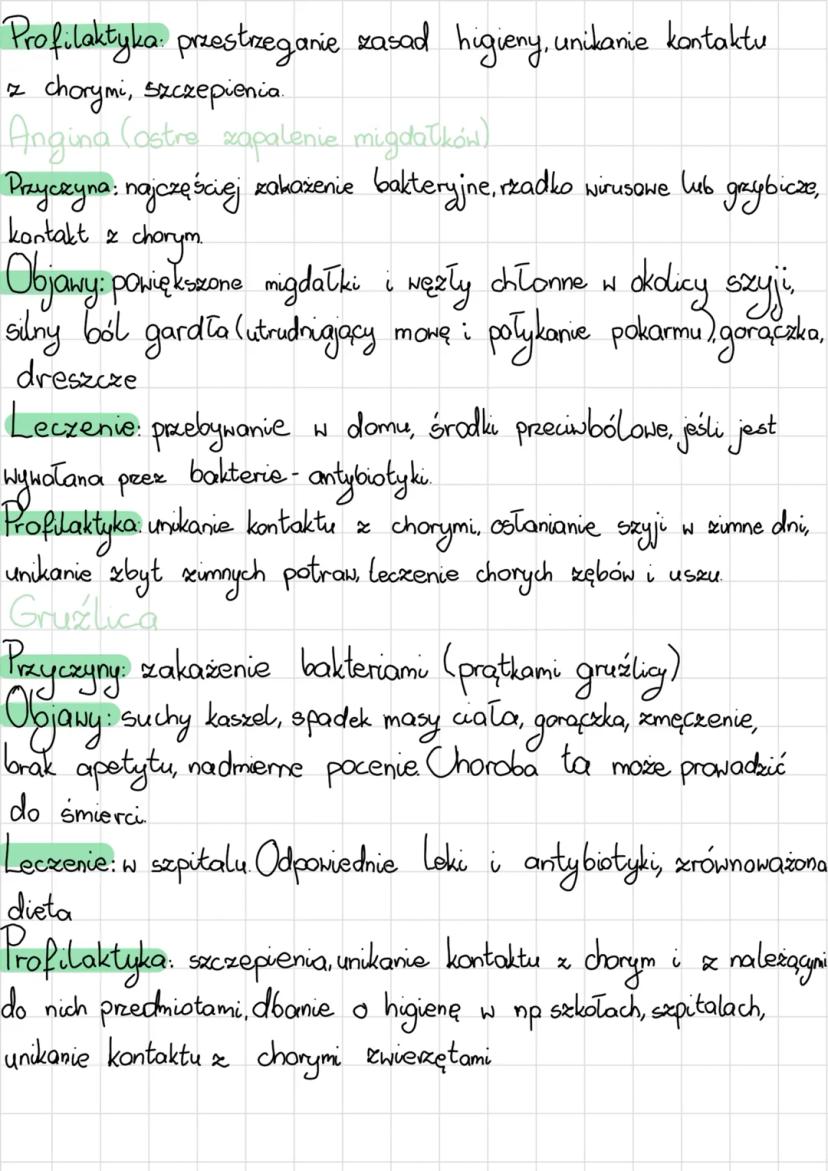 Profilaktyka: przestrzeganie zasad higieny, unikanie kontaktu
z chorymi, szczepienia.
Angina (ostre zapalenie migdałków)
Przyczyna: najczęściej zakażenie bakteryjne, rzadko wirusowe lub grzybicze,
kontakt z chorym.
Objawy: powiększone migdałki i węzły chłonne w okolicy szyji,
silny ból gardła (utrudniający mowę i połykanie pokarmu), gorączka,
dreszcze
Leczenie: przebywanie w domu, środki przeciwbólowe, jeśli jest
wywołana przez bakterie - antybiotyki.
Profilaktyka: unikanie kontaktu z chorymi, osłanianie szyji w zimne dni,
unikanie zbyt zimnych potraw, leczenie chorych zębów i uszu.
Gruźlica
Przyczyny: zakażenie bakteriami (prątkami gruźlicy)
Objawy: suchy kaszel, spadek masy ciała, gorączka, zmęczenie,
brak apetytu, nadmierne pocenie. Choroba ta może prowadzić
do śmierci.
Leczenie: w szpitalu. Odpowiednie leki i antybiotyki, zrównoważona
dieta
Profilaktyka: szczepienia, unikanie kontaktu z chorym i z należącymi
do nich przedmiotami, dbanie o higienę w np szkołach, szpitalach,
unikanie kontaktu z chorymi zwierzętami